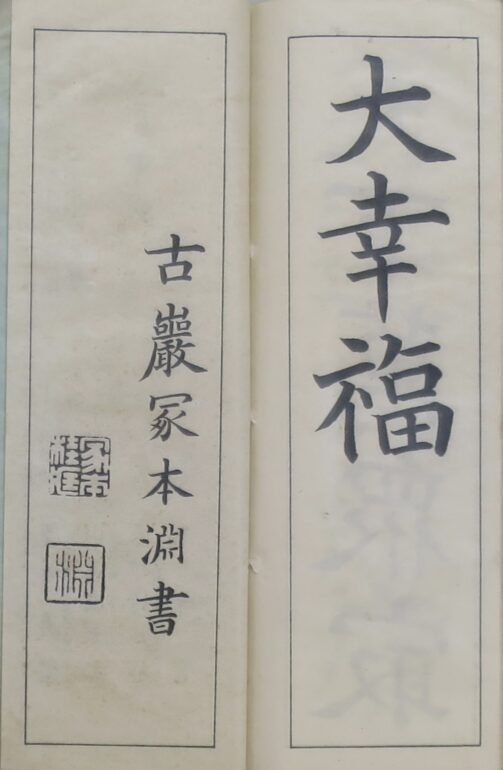 大幸福
古巖冢本淵書